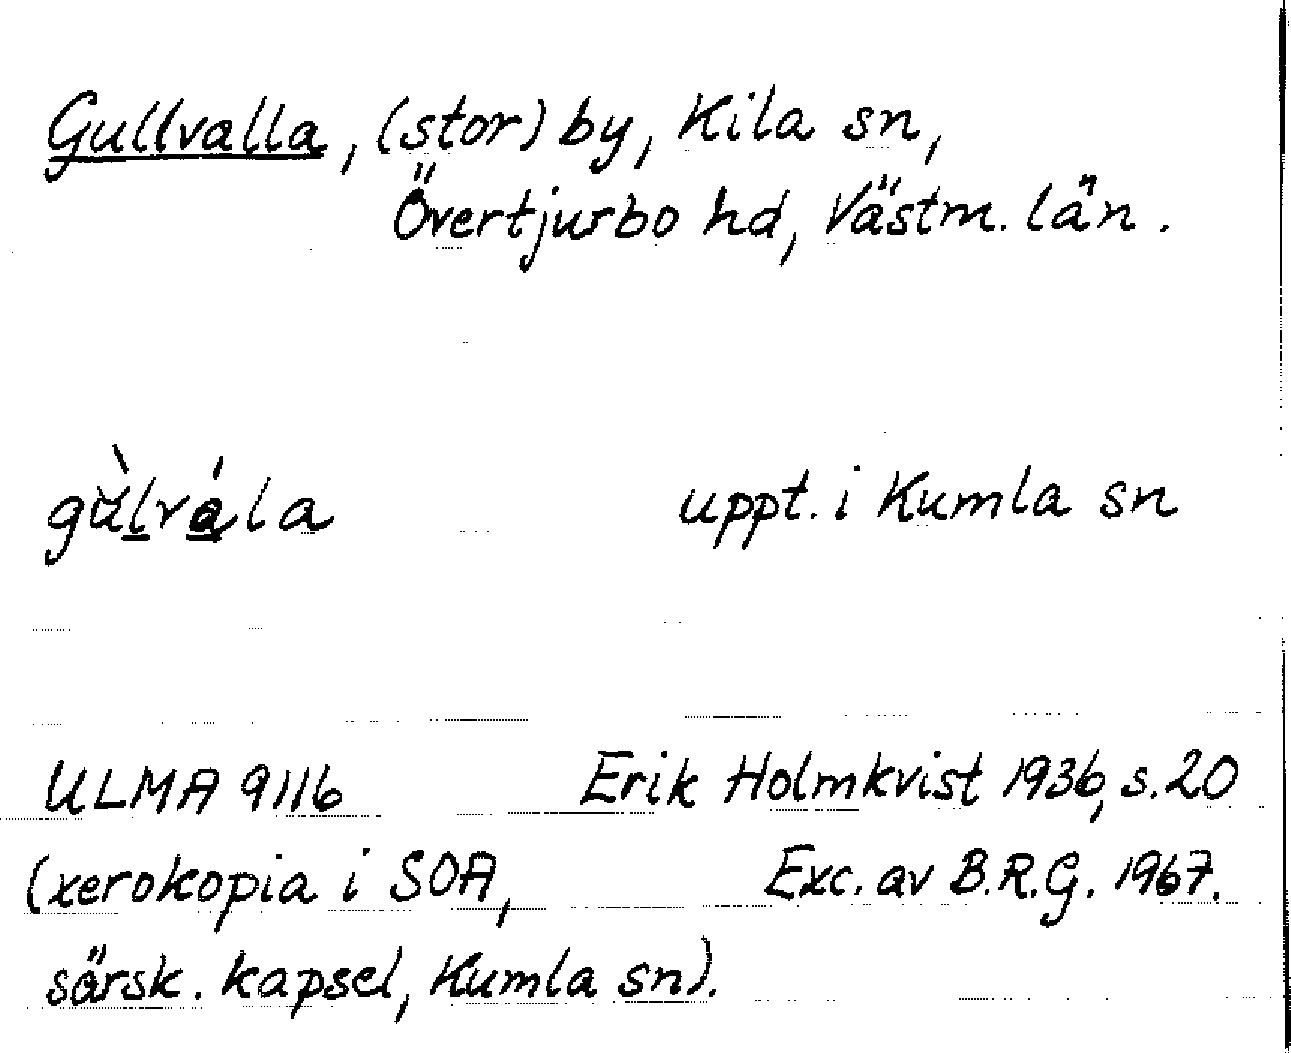 Gullvalla, (stor) by, Kila sn,
Övertjurbo hd, Västm. län.
gùlvála uppt. i Kumla sn
ULMA 9116 Erik Holmkvist 1936, s. 20
(xerokopia i SOA, Exc. av B.R.G. 1967.
särsk. kapsel, Kumla sn).